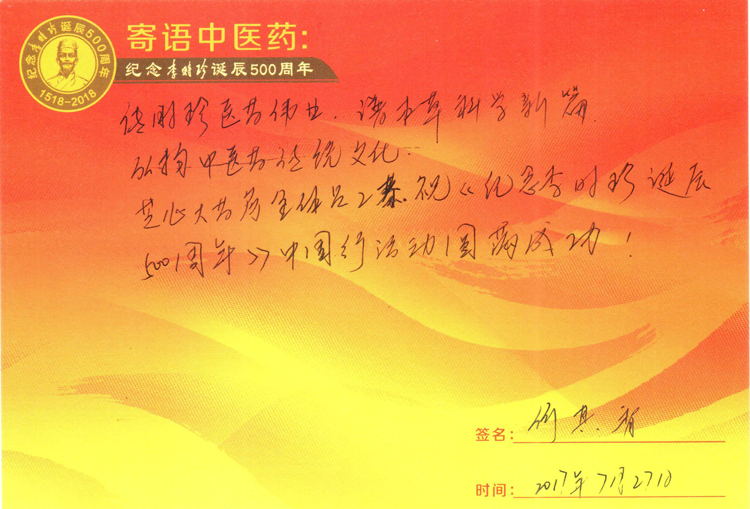 纪念李时珍诞辰500周年
1518-2018
寄语中医药:
纪念李时珍诞辰500周年
传时珍医药伟业、谱本草科学新篇.
弘扬中医药传统文化.
芝心大药房全体员工恭祝《纪念李时珍诞辰
500周年》中国行活动圆满成功!
签名: 何其
时间: 2017年7月27日